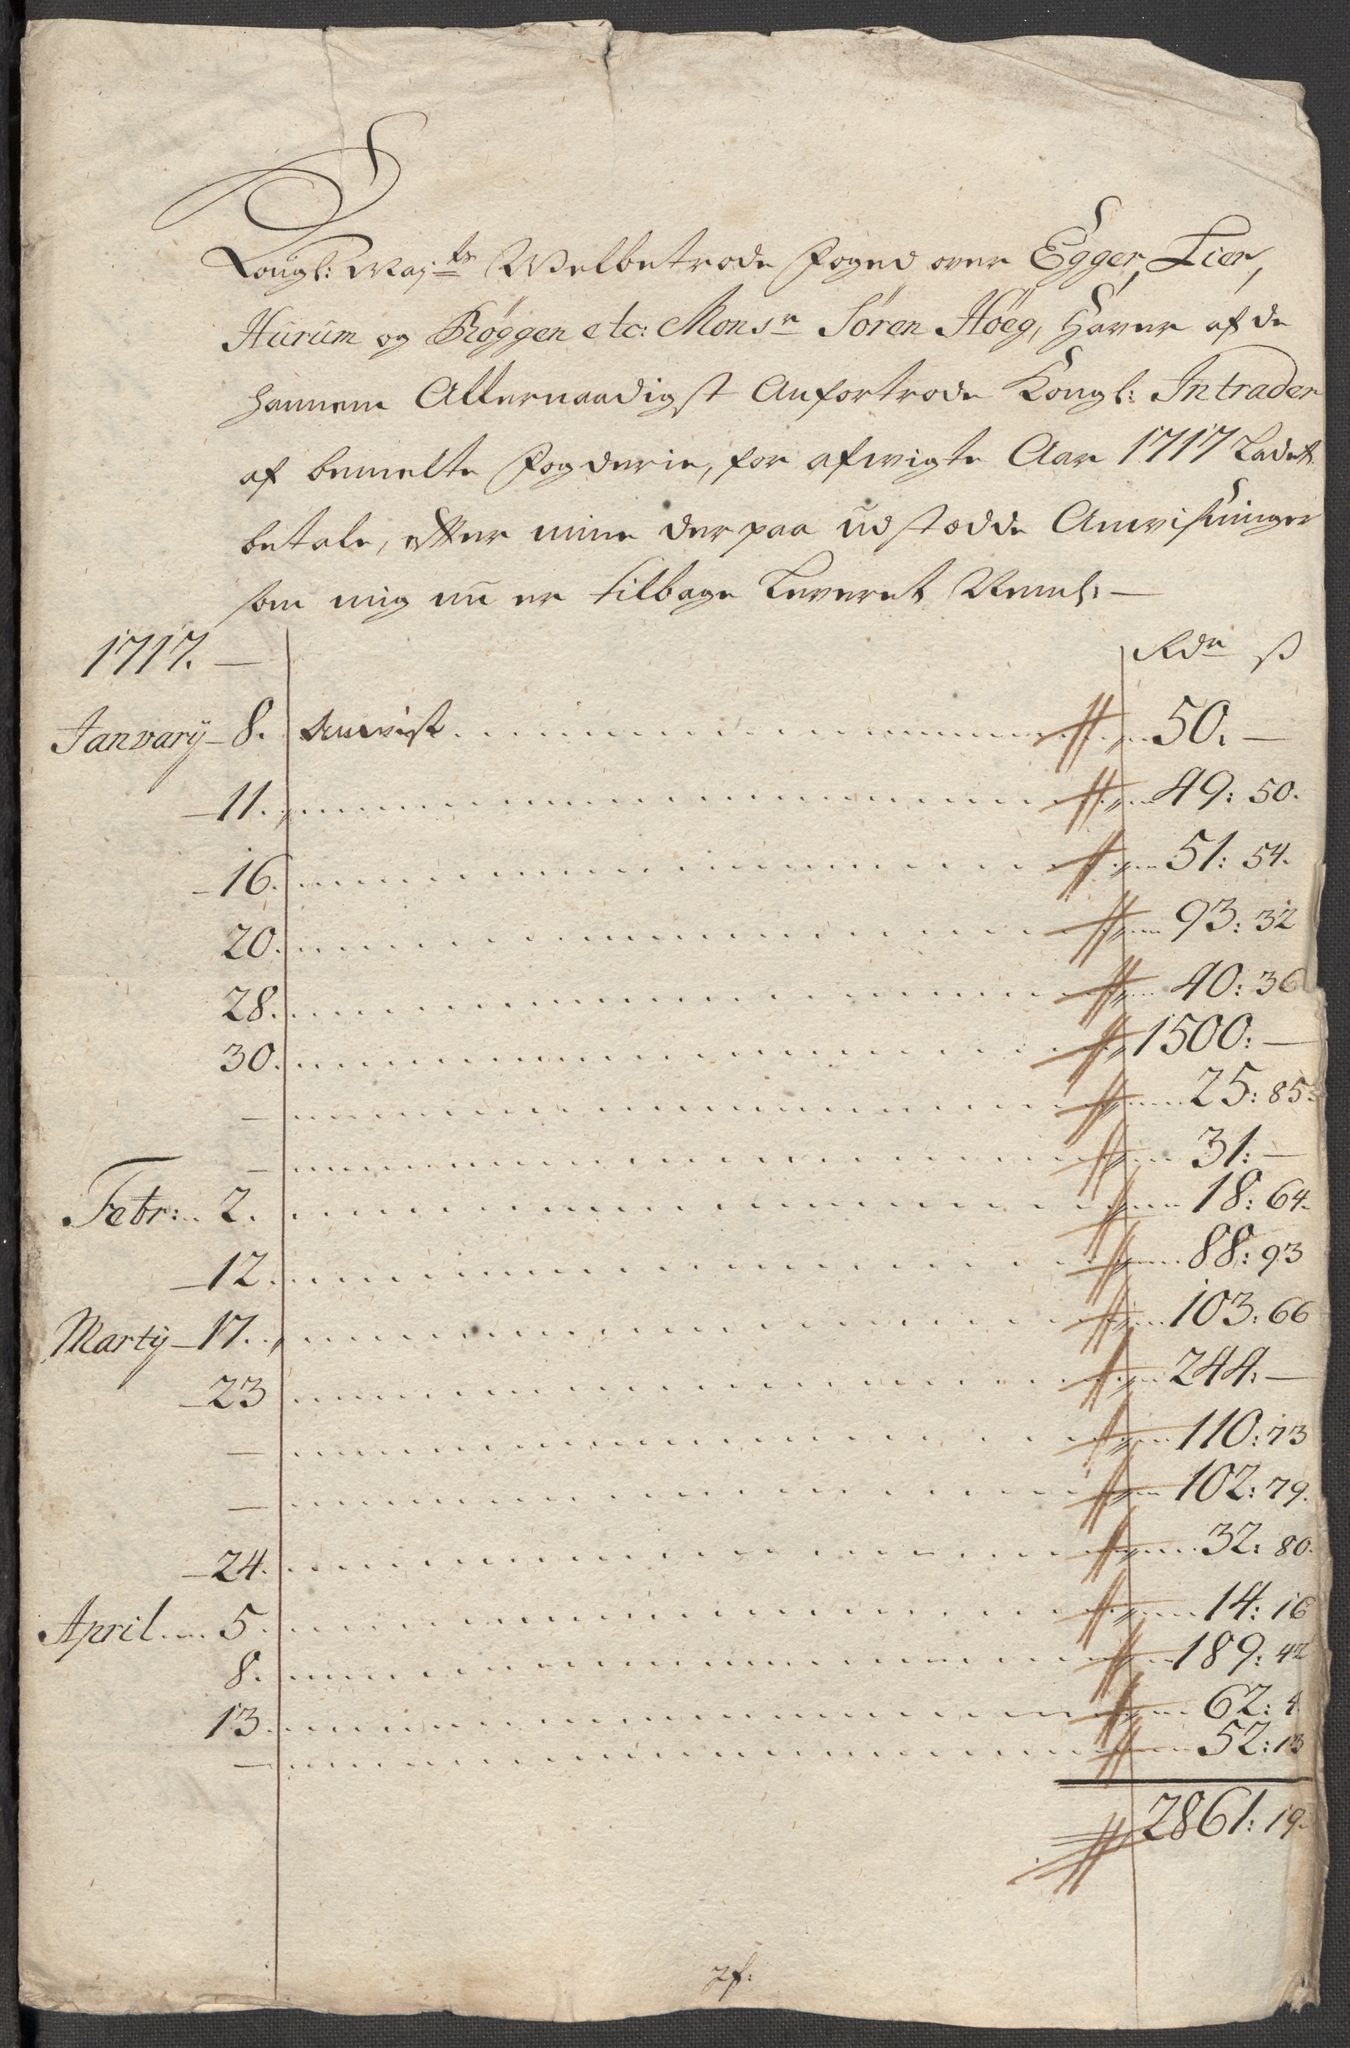 Kongl: Maj:ts Welbetrode Foged over Egger, Lier,
Hurum og Røggen etc: Monsr Søren Høeg, Haver af de
hannem Allernaadigst Anfortrode Kongl: Intrader
af bemelte Fogderie, for afvigte Aar 1717 Ladet
betale, efter mine derpaa udstædde Anvisninger
som mig nu er tilbage Leveret Neml: —
1717. — Rdr ß
Janvarij 8. Anvist 50. —
11. 49: 50.
16. 51: 54.
20. 93: 32
28. 40: 36
30. 1500: —
— 25: 85
— 31: —
Febr: 2. 18: 64.
12. 88: 93
Martij 17. 103: 66
23 244: —
— 110: 73
— 102: 79.
24. 32: 80.
April 5. 14: 16
8. 189: 42
13. 62: 4
— 52: 13
2861: 19.